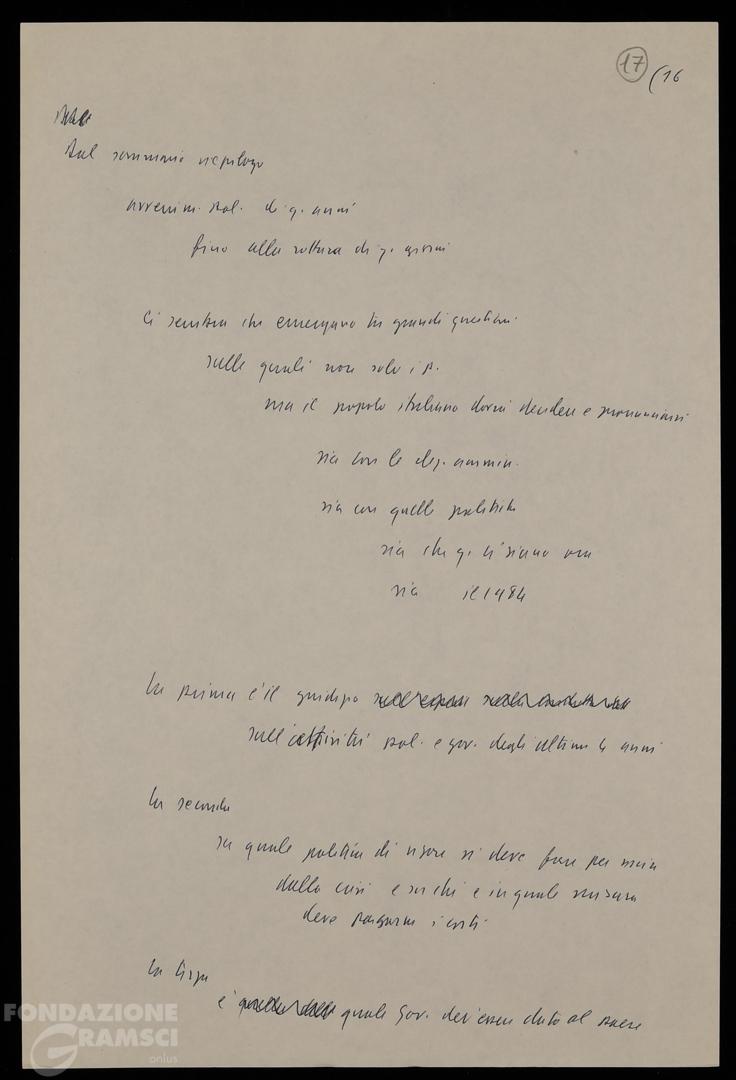 17 (16
Dal sommario riepilogo
avvenim. pol. di q. anni
fino alla rottura di q. giorni
Ci sembra che emergano tre grandi questioni
sulle quali non solo i p.
ma il popolo italiano dovrà decidere e pronunciarsi
sia con le elez. ammin.
sia con quelle politiche
sia che q. ci siano ora
sia il 1984
La prima è il giudizio
sull'attività pol. e gov. degli ultimi 4 anni
La seconda
su quale politica di rigore si deve fare per uscire
dalla crisi e su chi e in quale misura
deve pagarne i costi
La terza
è quale gov. dev'essere dato al paese
FONDAZIONE
GRAMSCI
onlus